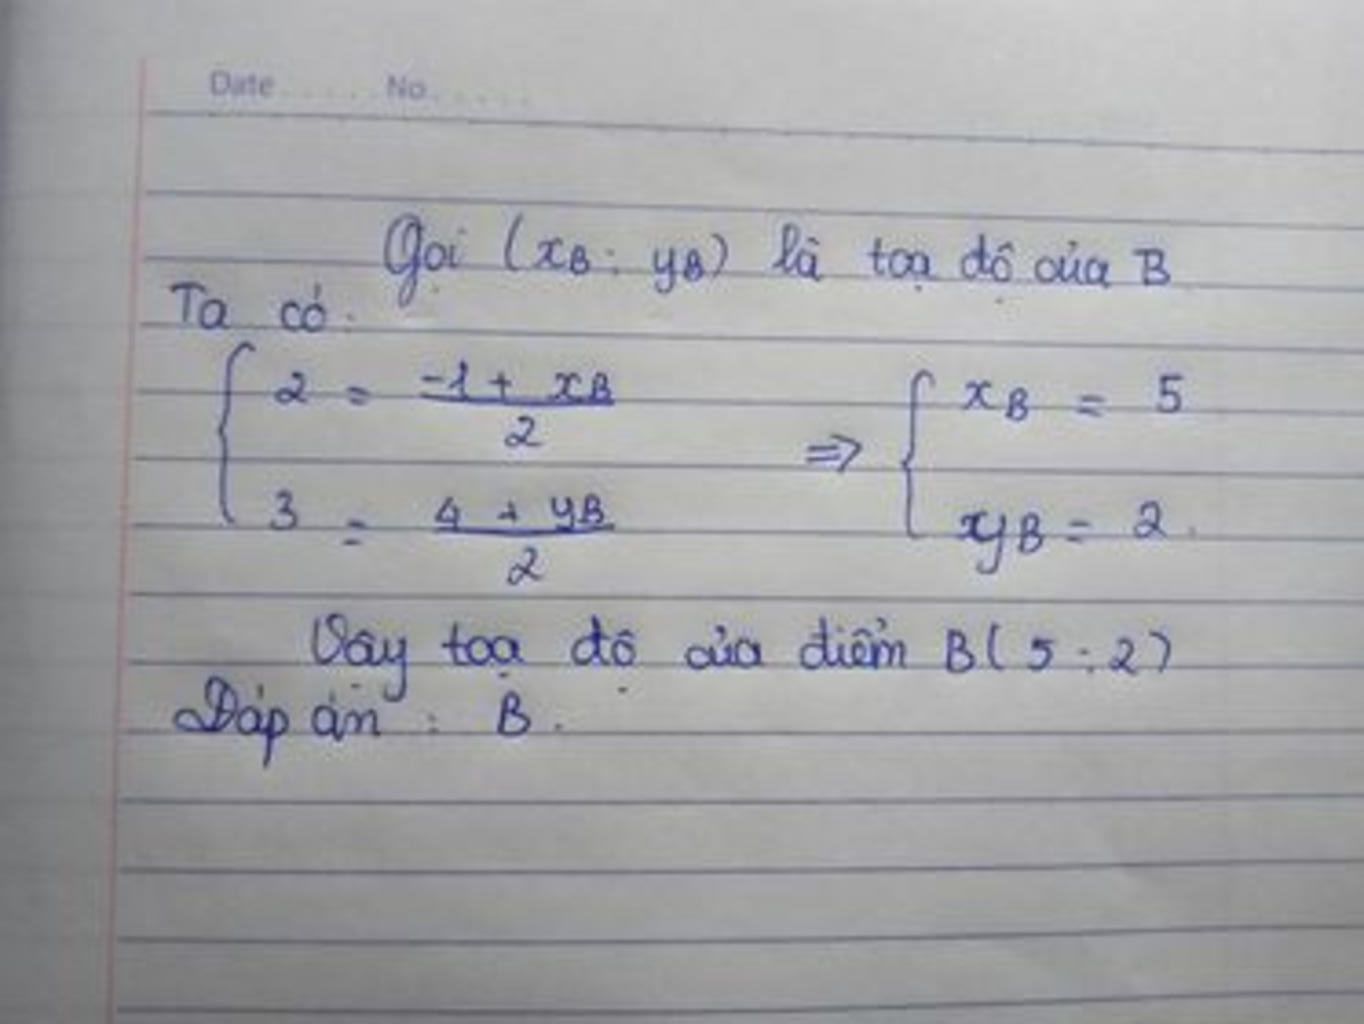 Date ..... No.....
Gọi (xB: yB) là toạ độ của B
Ta có:
{ 2 = (-1 + xB)/2 => { xB = 5
{ 3 = (4 + yB)/2 { xyB = 2.
Vậy toạ độ của điểm B(5:2)
Đáp án: B.